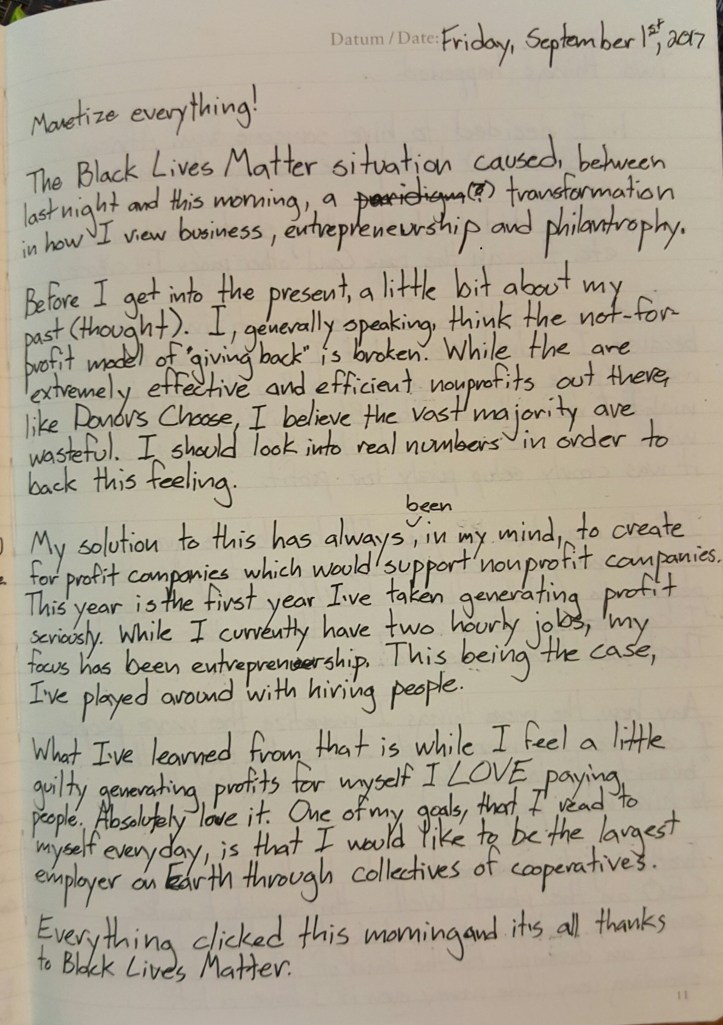 Datum / Date: Friday, September 1st, 2017
Monetize everything!
The Black Lives Matter situation caused, between
last night and this morning, a paridigm(?) transformation
in how I view business, entrepreneurship and philantrophy.
Before I get into the present, a little bit about my
past (thought). I, generally speaking, think the not-for-
profit model of "giving back" is broken. While the are
extremely effective and efficient nonprofits out there,
like Donors Choose, I believe the vast majority are
wasteful. I should look into real numbers in order to
back this feeling.
been
My solution to this has always, in my mind, to create
for profit companies which would support nonprofit companies.
This year is the first year I've taken generating profit
seriously. While I currently have two hourly jobs, my
focus has been entrepreneurship. This being the case,
I've played around with hiring people.
What I've learned from that is while I feel a little
guilty generating profits for myself I LOVE paying
people. Absolutely love it. One of my goals, that I read to
myself everyday, is that I would like to be the largest
employer on Earth through collectives of cooperatives.
Everything clicked this morning and it's all thanks
to Black Lives Matter.
11